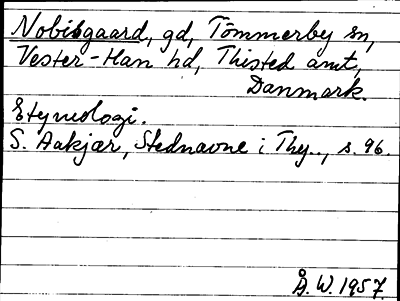 Nobisgaard, gd, Tömmerby sn,
Vester-Han hd, Thisted amt,
Danmark.
Etymologi.
S. Aakjær, Stednavne i Thy.., s. 96.
Å. W. 1957